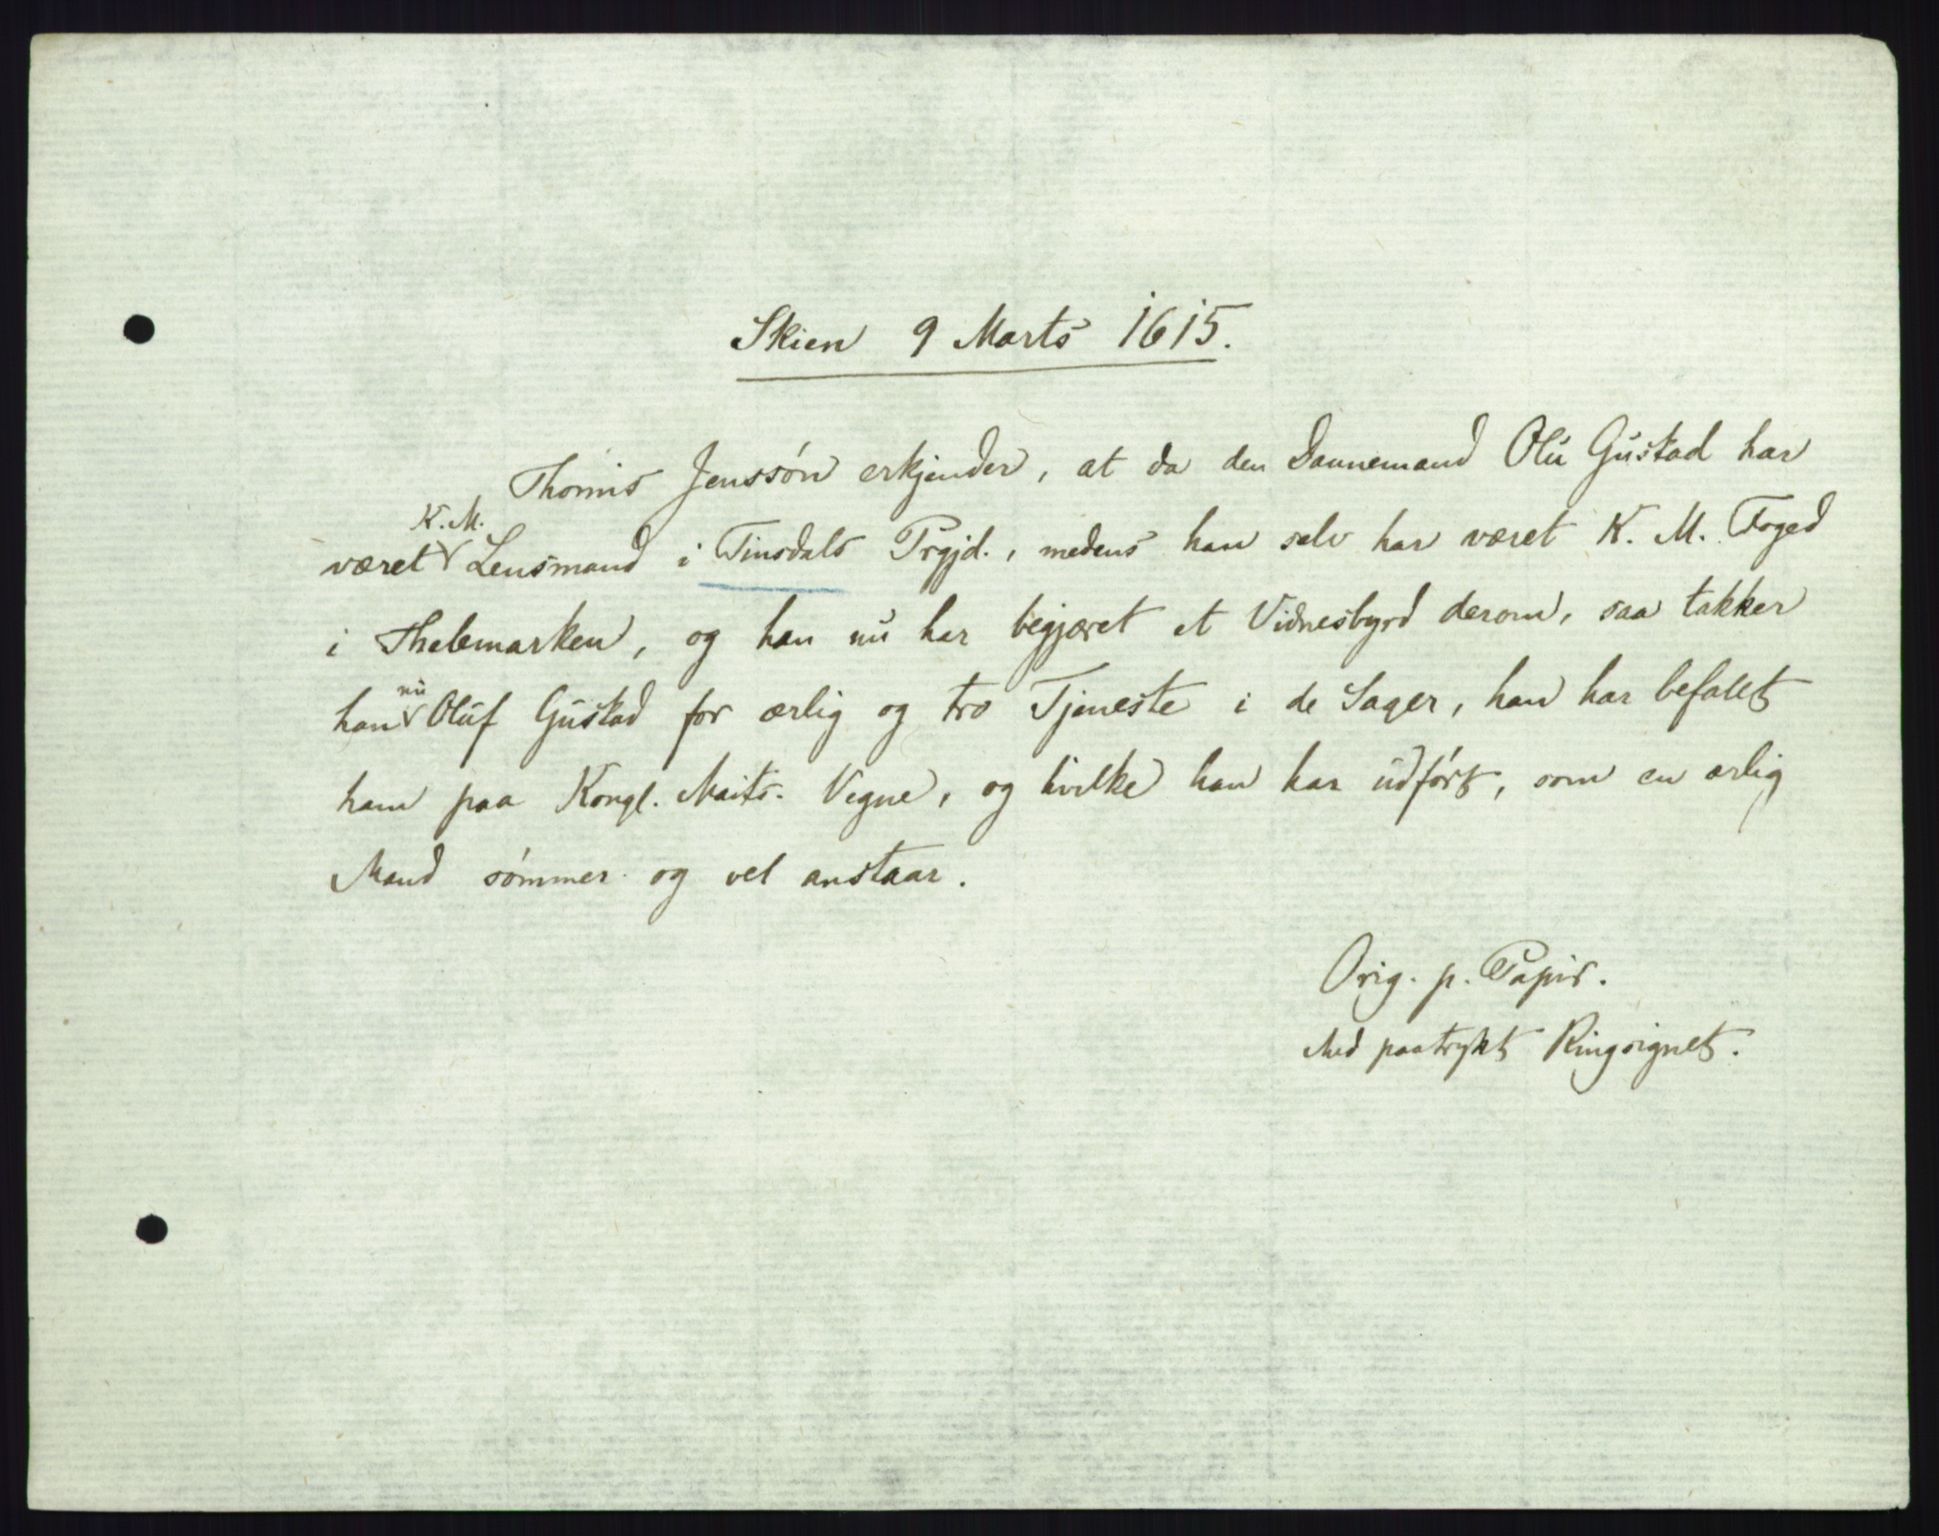 Skien 9 Marts 1615.
Thomis Jenssön erkjender, at da den Dannemand Olu Gustad har
K. M.
været Lensmand i Tinsdals Prgjd., medens han selv har været K. M. Foged
i Thelemarken, og han nu har begjæret et Vidnesbyrd derom, saa takker
nu
han Oluf Gustad for ærlig og tro Tjeneste i de Sager, han har befalet
ham paa Kongl. Maits. Vegne, og hvilke han har udført, som en ærlig
Mand sömmer og vel anstaar.
Orig. p. Papir.
Med paatrykt Ringsignet.